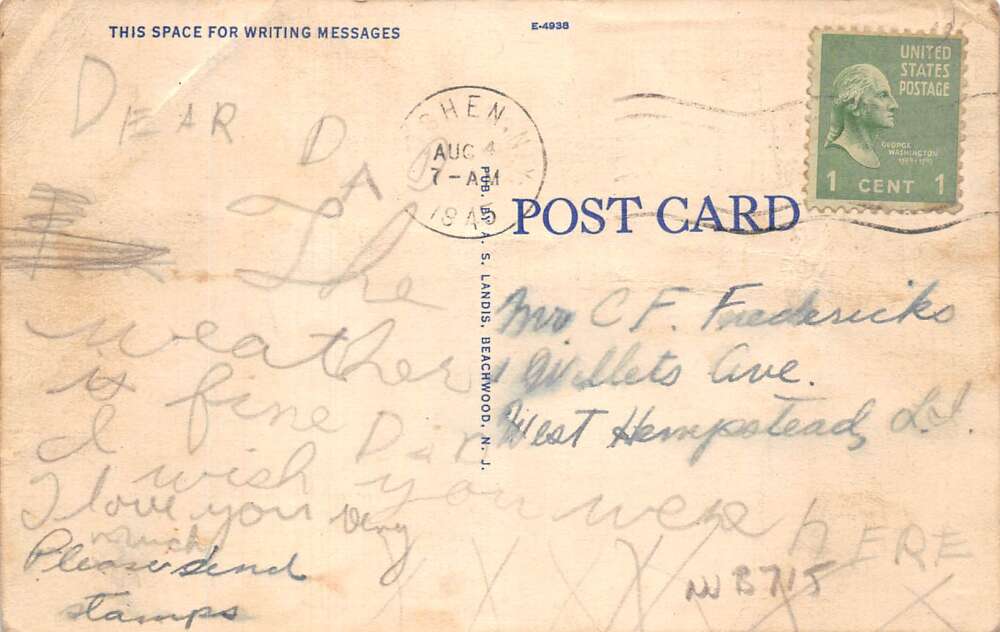 THIS SPACE FOR WRITING MESSAGES
E-4938
UNITED
STATES
POSTAGE
GEORGE
WASHINGTON
1 CENT 1
SHEN, N.Y.
AUG 4
7-AM
1945
POST CARD
PUB. BY A. S. LANDIS, BEACHWOOD, N. J.
DEAR DAD
The
weather
is fine Dad
I wish you were HERE
I love you very
much
Please send
stamps
XXXXXX
Mr. C F. Fredericks
Willets Ave.
West Hempstead, L.I.
NJ B715